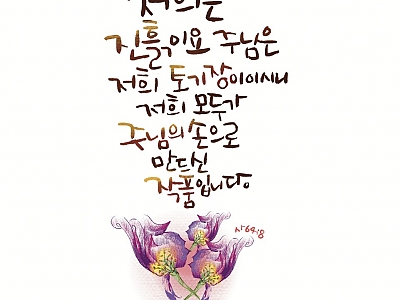 저희는
진흙이요 주님은
저희 토기장이이시니
저희 모두가
주님의 손으로
만드신
작품입니다.
사64:8